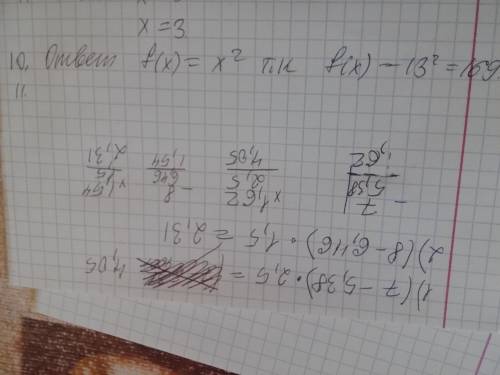 x = 3
10. Ответ f(x) = x² т.к f(x) – 13² = 169
11.
1) (7 – 5,38) · 2,5 = 4,05
2) (8 – 6,46) · 1,5 = 2,31
– 7
5,38
1,62
× 1,62
2,5
4,05
– 8
6,46
1,54
× 1,54
1,5
2,31